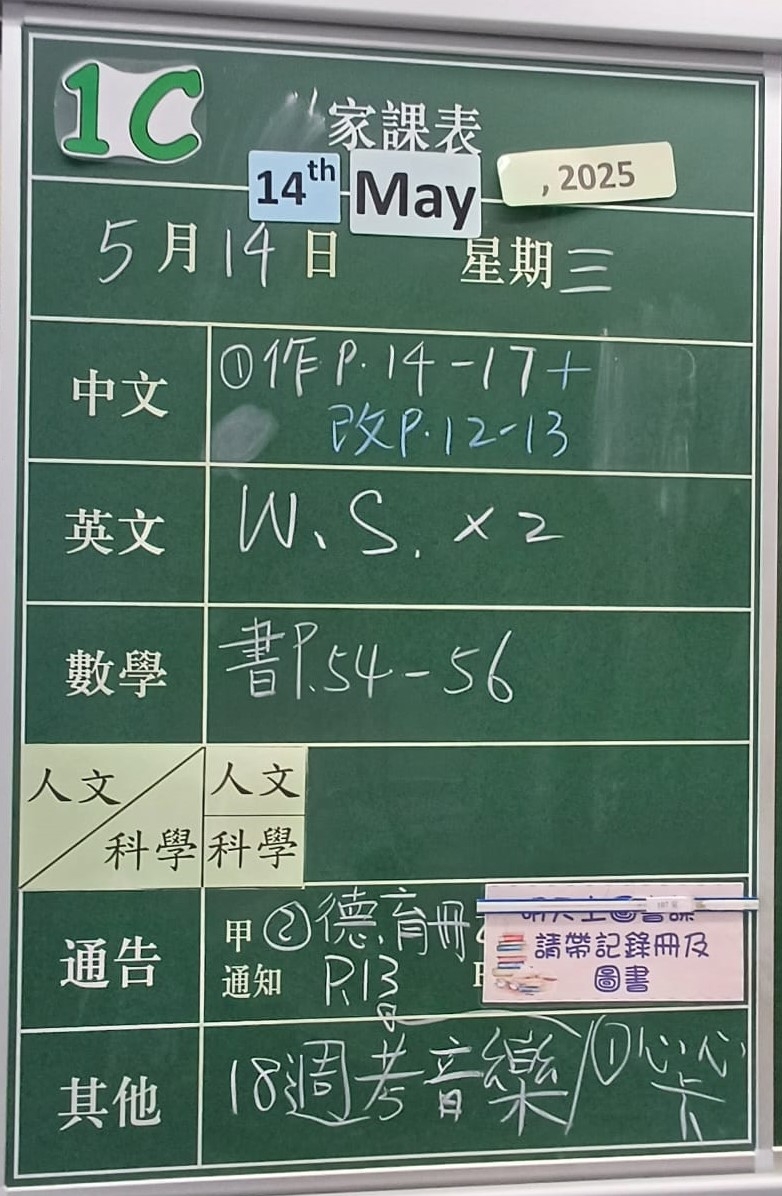 1C
家課表
14th May , 2025
5月14日 星期三
中文 ①作P.14-17+
改P.12-13
英文 W.S.×2
數學 書P.54-56
人文 人文
科學 科學
通告 甲②德育冊
通知 P.13
請帶記錄冊及
圖書
其他 18週考音樂/①心心
卡